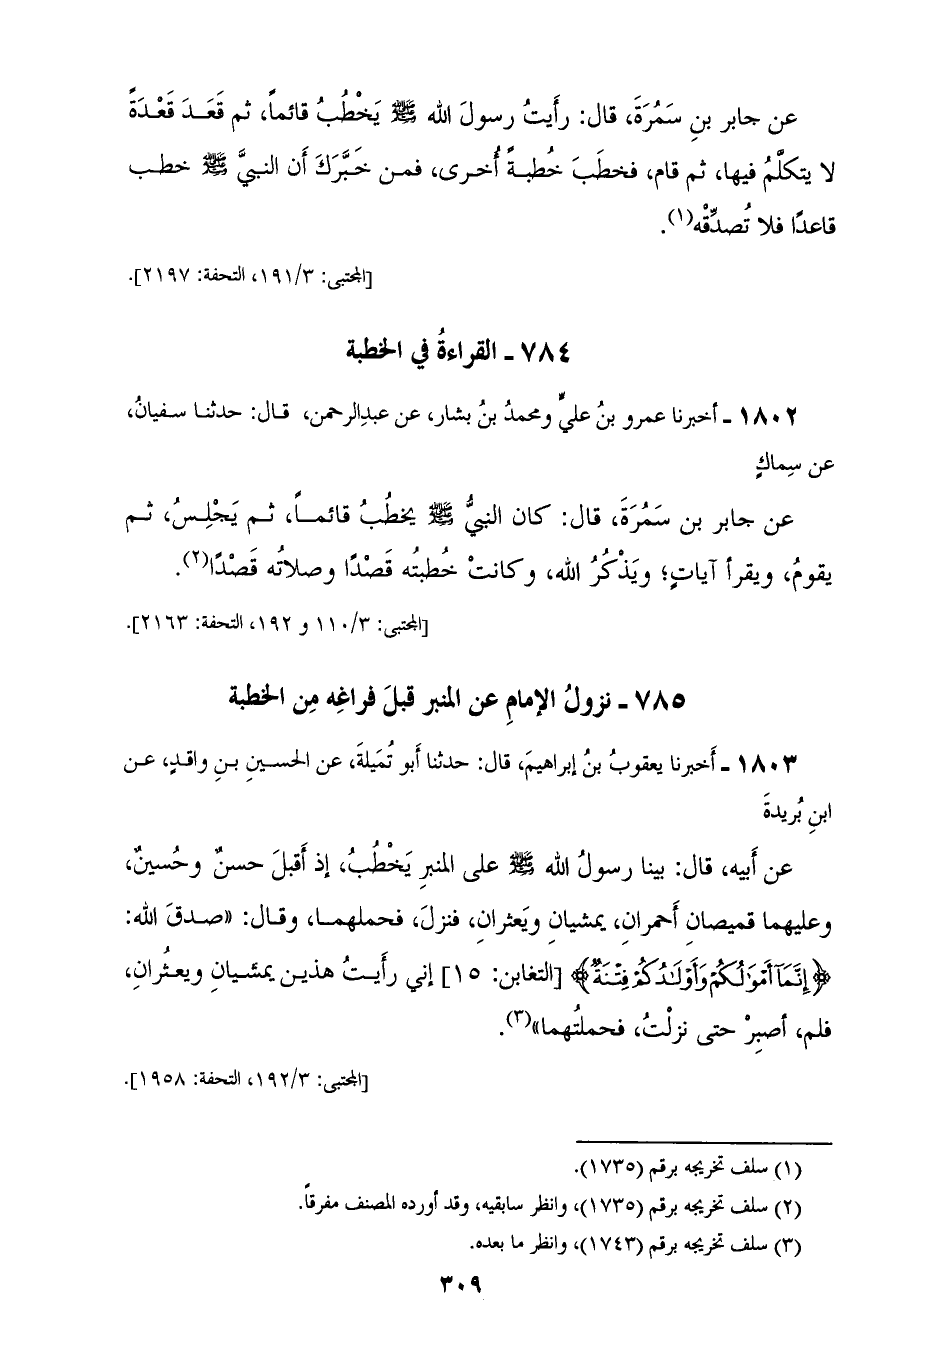 عن جابر بنِ سَمُرَةَ، قال: رأيتُ رسولَ الله ﷺ يَخْطُبُ قائماً، ثم قَعَـدَ قَعْدَةً
لا يتكلَّمُ فيها، ثم قام، فخطَبَ خُطبـةً أُخـرى، فمـن خَبَّرَكَ أن النبيَّ ﷺ خطـب
قاعدًا فلا تُصدِّقْه(١).
[المجتبى: ١٩١/٣، التحفة: ٢١٩٧].
٧٨٤ ـ القراءةُ في الخطبة
١٨٠٢ ـ أخبرنا عمرو بنُ عليٍّ ومحمدُ بنُ بشار، عن عبدِالرحمن، قـال: حدثنـا سـفيانُ،
عن سِماكٍ
عن جابر بن سَمُرَةَ، قال: كان النبيُّ ﷺ يخطُبُ قائمـاً، ثـم يَجْلِـسُ، ثـم
يقومُ، ويقرأ آياتٍ؛ ويَذْكُرُ الله، وكانتْ خُطبتُه قَصْدًا وصلاتُه قَصْدًا(٢).
[المجتبى: ١١٠/٣ و ١٩٢، التحفة: ٢١٦٣].
٧٨٥ ـ نزولُ الإمامِ عن المنبر قبلَ فراغِه مِن الخطبة
١٨٠٣ ـ أَخبرنا يعقوبُ بنُ إبراهيمَ، قال: حدثنا أبو تُمَيلةَ، عن الحسـينِ بـنِ واقـدٍ، عـن
ابنِ بُريدةَ
عن أَبيه، قال: بينا رسولُ الله ﷺ على المنبرِ يَخْطُبُ، إذ أَقبلَ حسنٌ وحُسينٌ،
وعليهما قميصانِ أَحمرانِ، يمشيانِ ويَعثرانِ، فنزلَ، فحملهمـا، وقـال: «صـدقَ الله:
﴿إِنَّمَآ أَمْوَٰلُكُمْ وَأَوْلَـٰدُكُمْ فِتْنَةٌ﴾ [التغابن: ١٥] إني رأَيـتُ هذيـن يمشـيانِ ويعثُرانِ،
فلم، أصبِرْ حتى نزلْتُ، فحملتُهما»(٣).
[المجتبى: ١٩٢/٣، التحفة: ١٩٥٨].
(١) سلف تخريجه برقم (١٧٣٥).
(٢) سلف تخريجه برقم (١٧٣٥)، وانظر سابقيه، وقد أورده المصنف مفرقاً.
(٣) سلف تخريجه برقم (١٧٤٣)، وانظر ما بعده.
٣٠٩